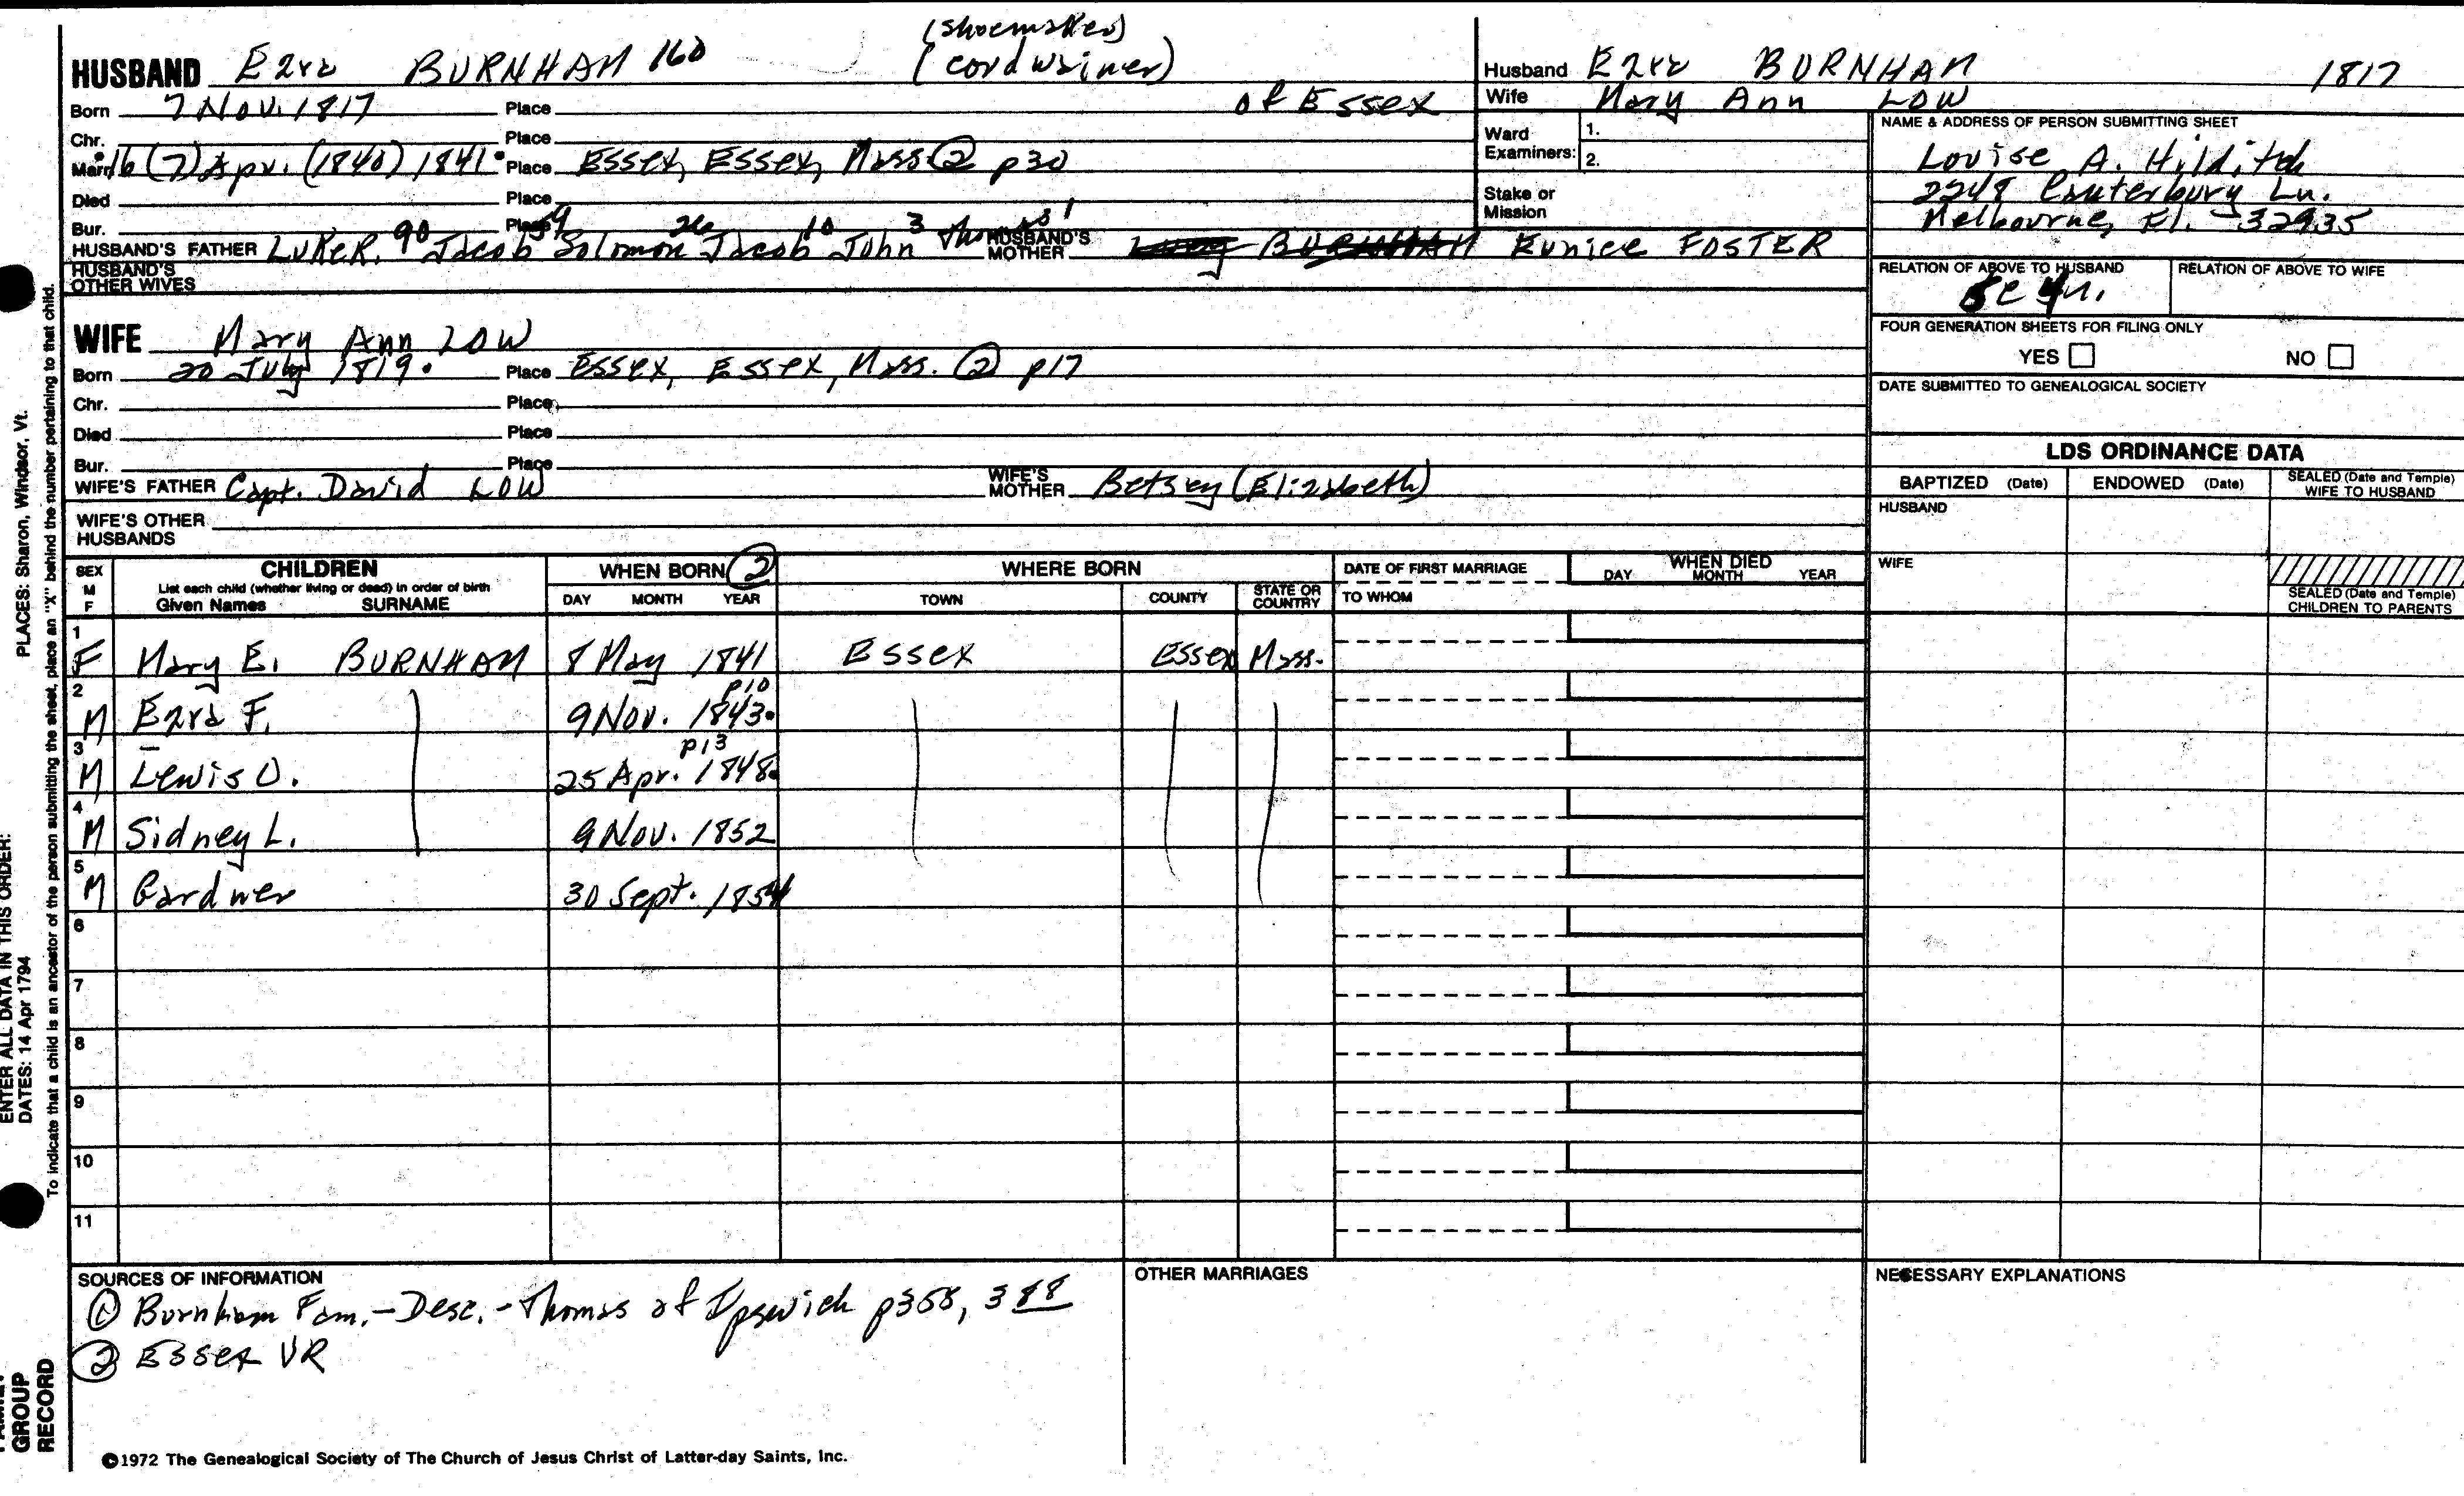 (shoemaker)
HUSBAND Ezra BURNHAM 160 (cordwainer)
Born 7 Nov. 1817 Place of Essex
Chr. Place
Marr. 16 (7) Apr. (1840) 1841. Place Essex, Essex, Mass. ② p30
Died Place
Bur. Place
HUSBAND'S FATHER Luke R. 90 Jacob 59 Solomon 26 Jacob 10 John 3 Thomas 1 HUSBAND'S MOTHER BURNHAM Eunice FOSTER
HUSBAND'S OTHER WIVES
WIFE Mary Ann LOW
Born 20 July 1819. Place Essex, Essex, Mass. ② p17
Chr. Place
Died Place
Bur. Place
WIFE'S FATHER Capt. David LOW WIFE'S MOTHER Betsey (Elizabeth)
WIFE'S OTHER HUSBANDS
Husband Ezra BURNHAM 1817
Wife Mary Ann LOW
Ward Examiners: 1.
2.
Stake or Mission
NAME & ADDRESS OF PERSON SUBMITTING SHEET
Louise A. Hilditch
2248 Canterbury Ln.
Melbourne, Fl. 32935
RELATION OF ABOVE TO HUSBAND RELATION OF ABOVE TO WIFE
FOUR GENERATION SHEETS FOR FILING ONLY
YES NO
DATE SUBMITTED TO GENEALOGICAL SOCIETY
LDS ORDINANCE DATA
BAPTIZED (Date) ENDOWED (Date) SEALED (Date and Temple) WIFE TO HUSBAND
HUSBAND
WIFE
SEALED (Date and Temple) CHILDREN TO PARENTS
SEX M F CHILDREN List each child (whether living or dead) in order of birth Given Names SURNAME WHEN BORN ② DAY MONTH YEAR WHERE BORN TOWN COUNTY STATE OR COUNTRY DATE OF FIRST MARRIAGE TO WHOM WHEN DIED DAY MONTH YEAR
1 F Mary E. BURNHAM 8 May 1841 Essex Essex Mass.
p10
2 M Ezra F. 9 Nov. 1843.
p13
3 M Lewis O. 25 Apr. 1848.
4 M Sidney L. 9 Nov. 1852
5 M Gardner 30 Sept. 1854
6
7
8
9
10
11
SOURCES OF INFORMATION
① Burnham Fam. - Desc. - Thomas of Ipswich p358, 388
② Essex VR
OTHER MARRIAGES
NECESSARY EXPLANATIONS
©1972 The Genealogical Society of The Church of Jesus Christ of Latter-day Saints, Inc.
PLACES: Sharon, Windsor, Vt.
To indicate that a child is an ancestor of the person submitting the sheet, place an "X" behind the number pertaining to that child.
ENTER ALL DATA IN THIS ORDER:
DATES: 14 Apr 1794
GROUP
RECORD